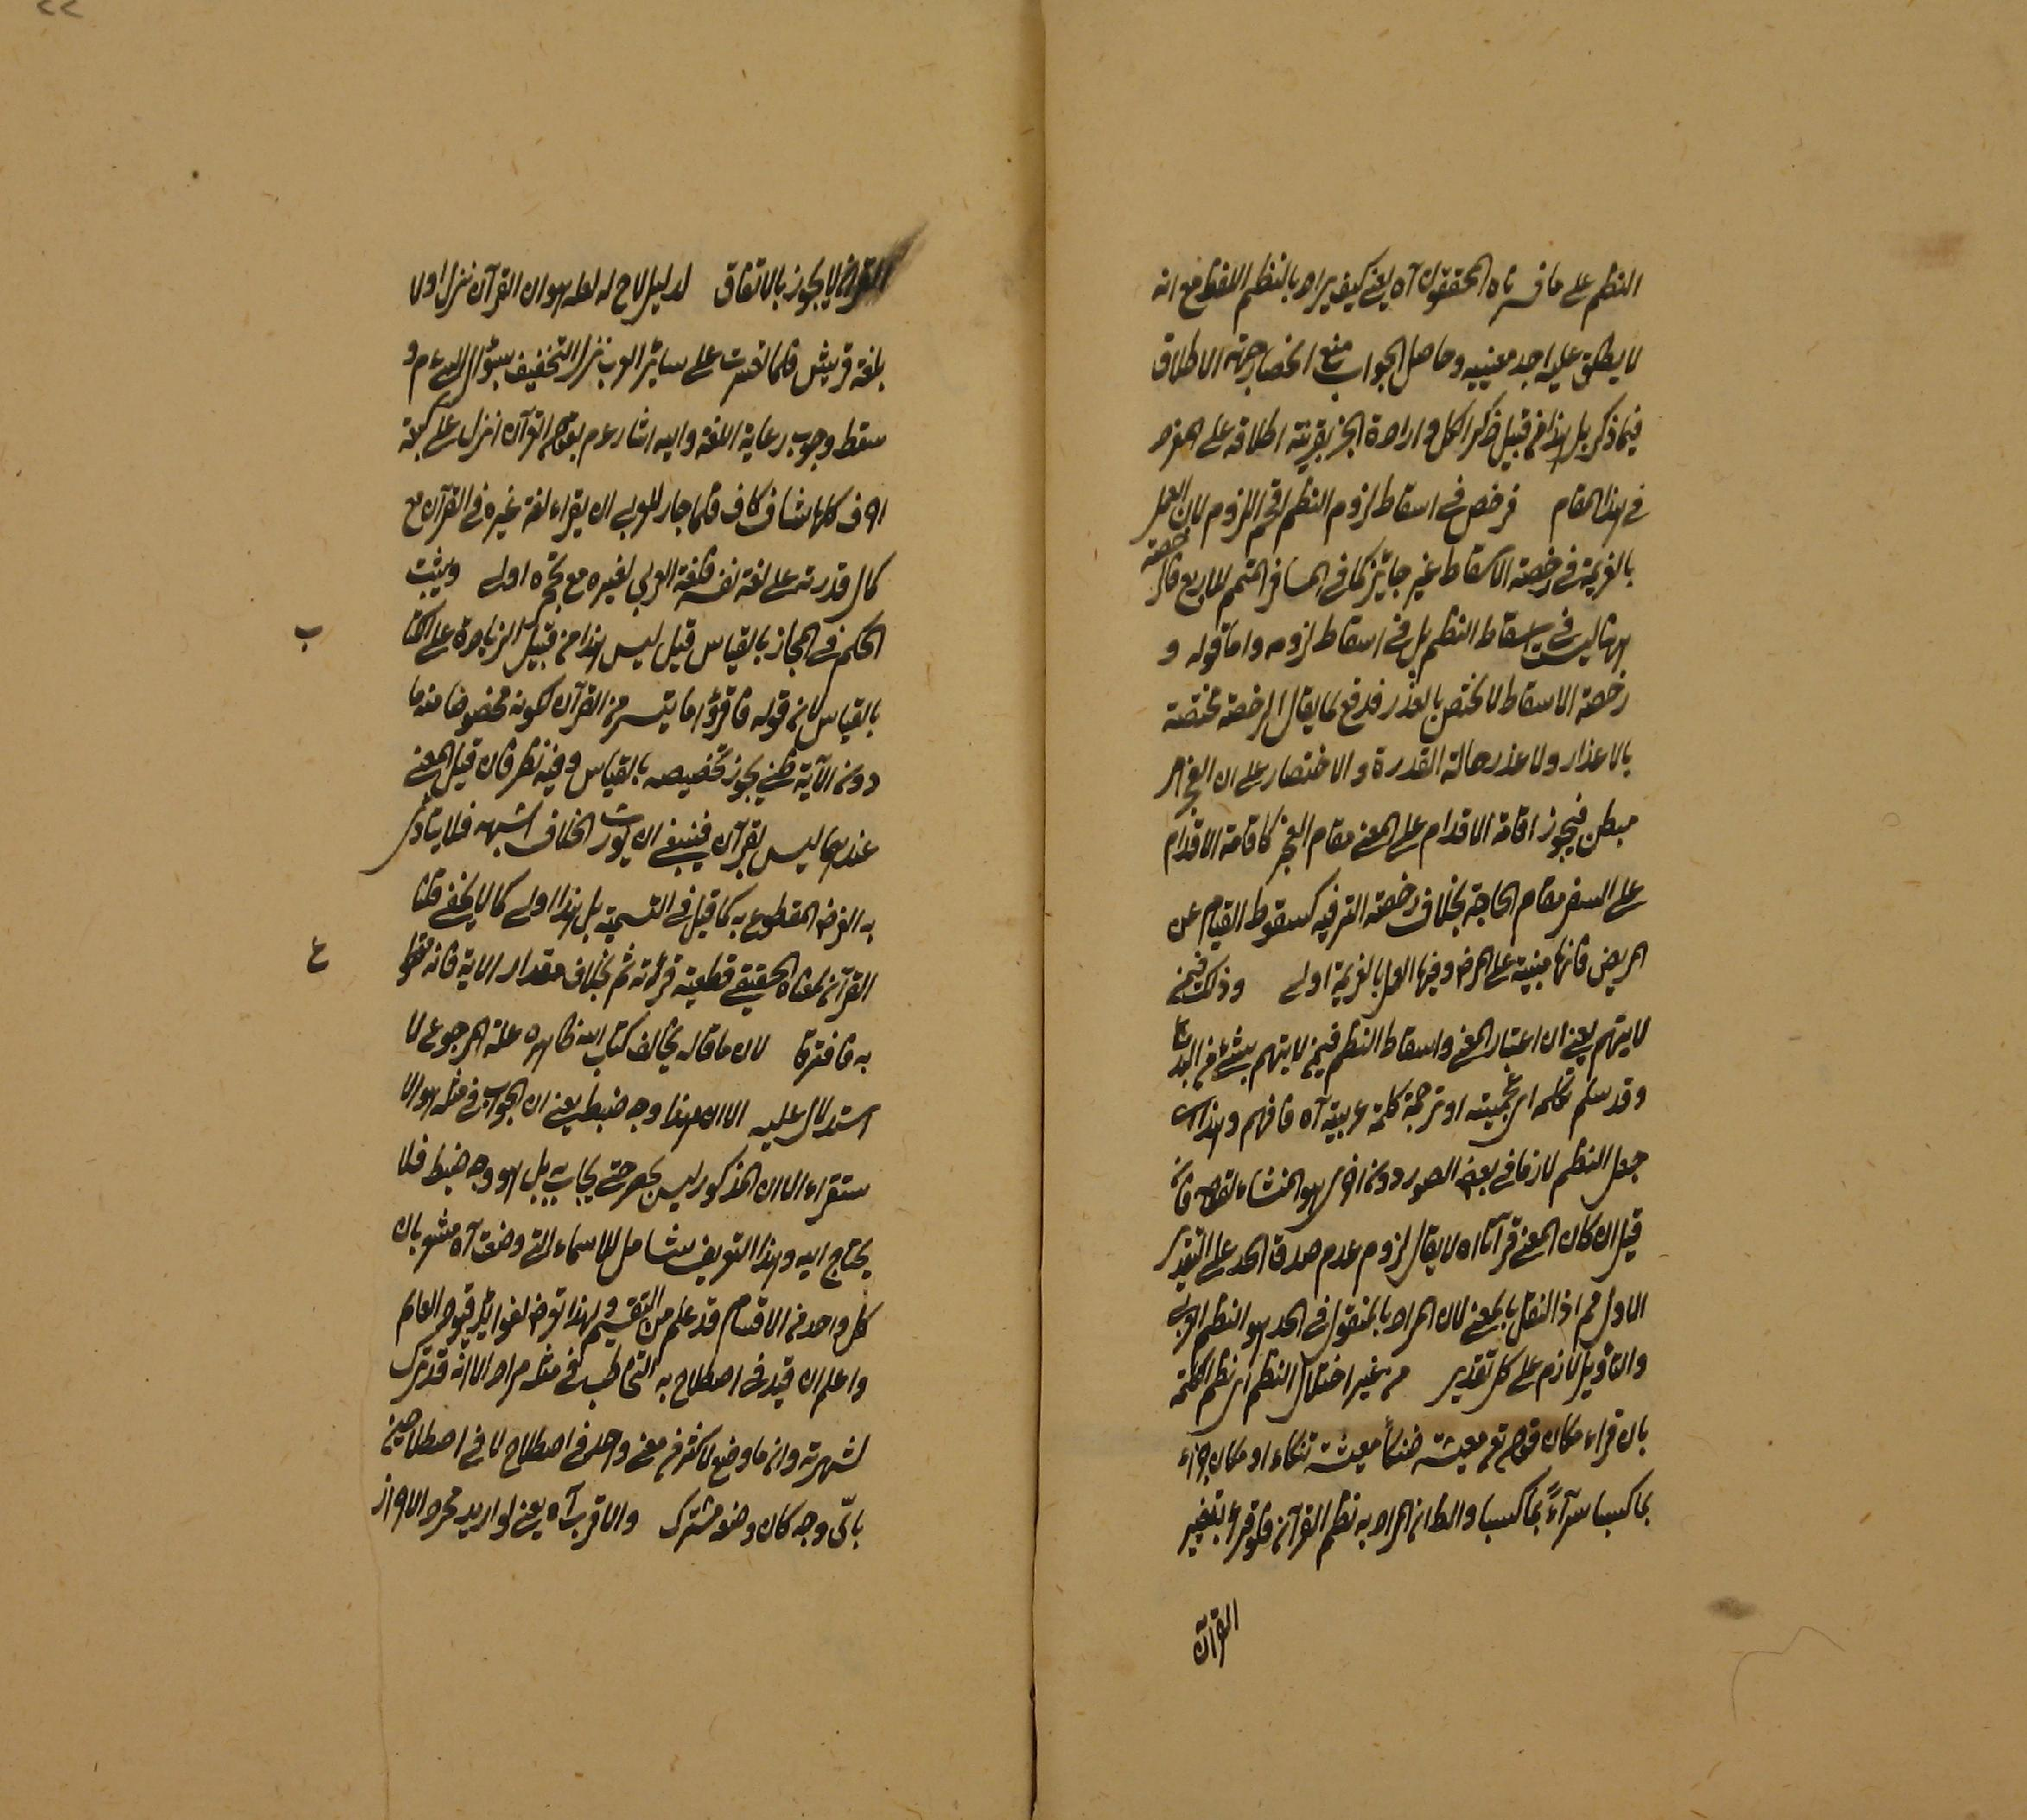 النظم على ما فسره المحققون آه يعني كيف يراد بالنظم اللفظ مع انه
لا يطلق عليه احد معنييه وحاصل الجواب منع انحصار جهة الاطلاق
فيما ذكر بل هذا من قبيل ذكر الكل وارادة الجزء بقرينة اطلاقه على المفرد
في هذا المقام فرخص في اسقاط لزوم النظم اقحم اللزوم لان العمل
بالعزيمة في رخصة الاسقاط غير جائز كما في المسافر المتمم للاربع فالرخصة
ههنا ليست في اسقاط النظم بل في اسقاط لزومه واما قوله و
رخصة الاسقاط لا تختص بالعذر فدفع لما يقال الرخصة مختصة
بالاعذار ولا عذر حالة القدرة والاختصار على ان العجز امر
مبطن فيجوز اقامة الاقدام على المعنى مقام العجز كاقامة الاقدام
على السفر مقام الحاجة بخلاف رخصة الترفيه كسقوط القيام عن
المريض فانها مبنية على المرض وفيها العمل بالعزيمة اولى وذلك فيمن
لا يتهم يعني ان اعتبار المعنى واسقاط النظم فيمن لا يتهم بشيء من البدعة
وقد سلم تكلمه اى عجمية او ترجمة كلمة عربية آه فافهم وهذا
جعل النظم لازما في بعض الصور دون اخرى هو المنشاء لقوله فان
قيل ان كان المعنى قرآنا آه لا يقال لزوم عدم صدق الحد على التقدير
الاول مم اذ النقل بالمعنى لان المراد بالمنقول في الحد هو النظم العربي
والتأويل لازم على كل تقدير من غير اختلال النظم اى نظم الكلمة
بان قراء مكان قوله تع معيشة ضنكاً معيشة تنكاء او مكان جزاء
بما كسبا سزآءً بما كسبا والظ ان المراد به نظم القرآن فلو قراء بتفسير
القرآن
القرآن لا يجوز بالاتفاق لدليل لاح له لعله هو ان القرآن نزل اولا
بلغة قريش فلما تعسرت على سائر العرب نزل التخفيف بسؤال الرسول عم و
سقط وجوب رعاية اللغة واليه اشار عم بقوله القرآن انزل على سبعة
احرف كلها شاف كاف فلما جاز للعربي ان يقراء لغة غيره في القرآن مع
كمال قدرته على لغة نفسه فلغة العربي لغيره مع عجزه اولى ويثبت
الحكم في المجاز بالقياس قيل ليس هذا من قبيل الزيادة على الكتاب
بالقياس لان قوله فاقرؤا ما تيسر من القرآن لكونه مخصوصا منه ما
دون الآية ظني يجوز تخصيصه بالقياس وفيه نظر فان قيل المعنى
عندهما ليس بقرآن فينبغي ان يورث الخلاف شبهة فلا يتأدى
به الفرض المقطوع به كما قيل في التسمية بل هذا اولى كما لا يخفى قلنا
القرآن بمعناه الحقيقي قطعية قرآنيته ثم بخلاف مقدار الاية فانه مقطوع
به فافترقا لان ما قاله يخالف كتاب الله ظاهره علة الرجوع لا
استدلال عليه الا ان هذا وجه ضبط يعني ان الجواب في مثله هو الا
ستقراء الا ان المذكور ليس بحصر حتى يجاب به بل هو وجه ضبط فلا
يحتاج اليه وهذا التعريف شامل للاسماء التي وضعت آه مشعر بان
كل واحد من الاقسام قد علم من التقسيم ولهذا تعرض لفوائد قيود العام
واعلم ان قيد في اصطلاح به التخاطب في مثله مراد الا انه قد ترك
لشهرته وان ما وضع لاكثر من معنى واحد في اصطلاح لا في اصطلاحين
بائ وجه كان وضعه مشترك والاقرب آه يعني لو اريد مجرد الاحراز
ب
ع